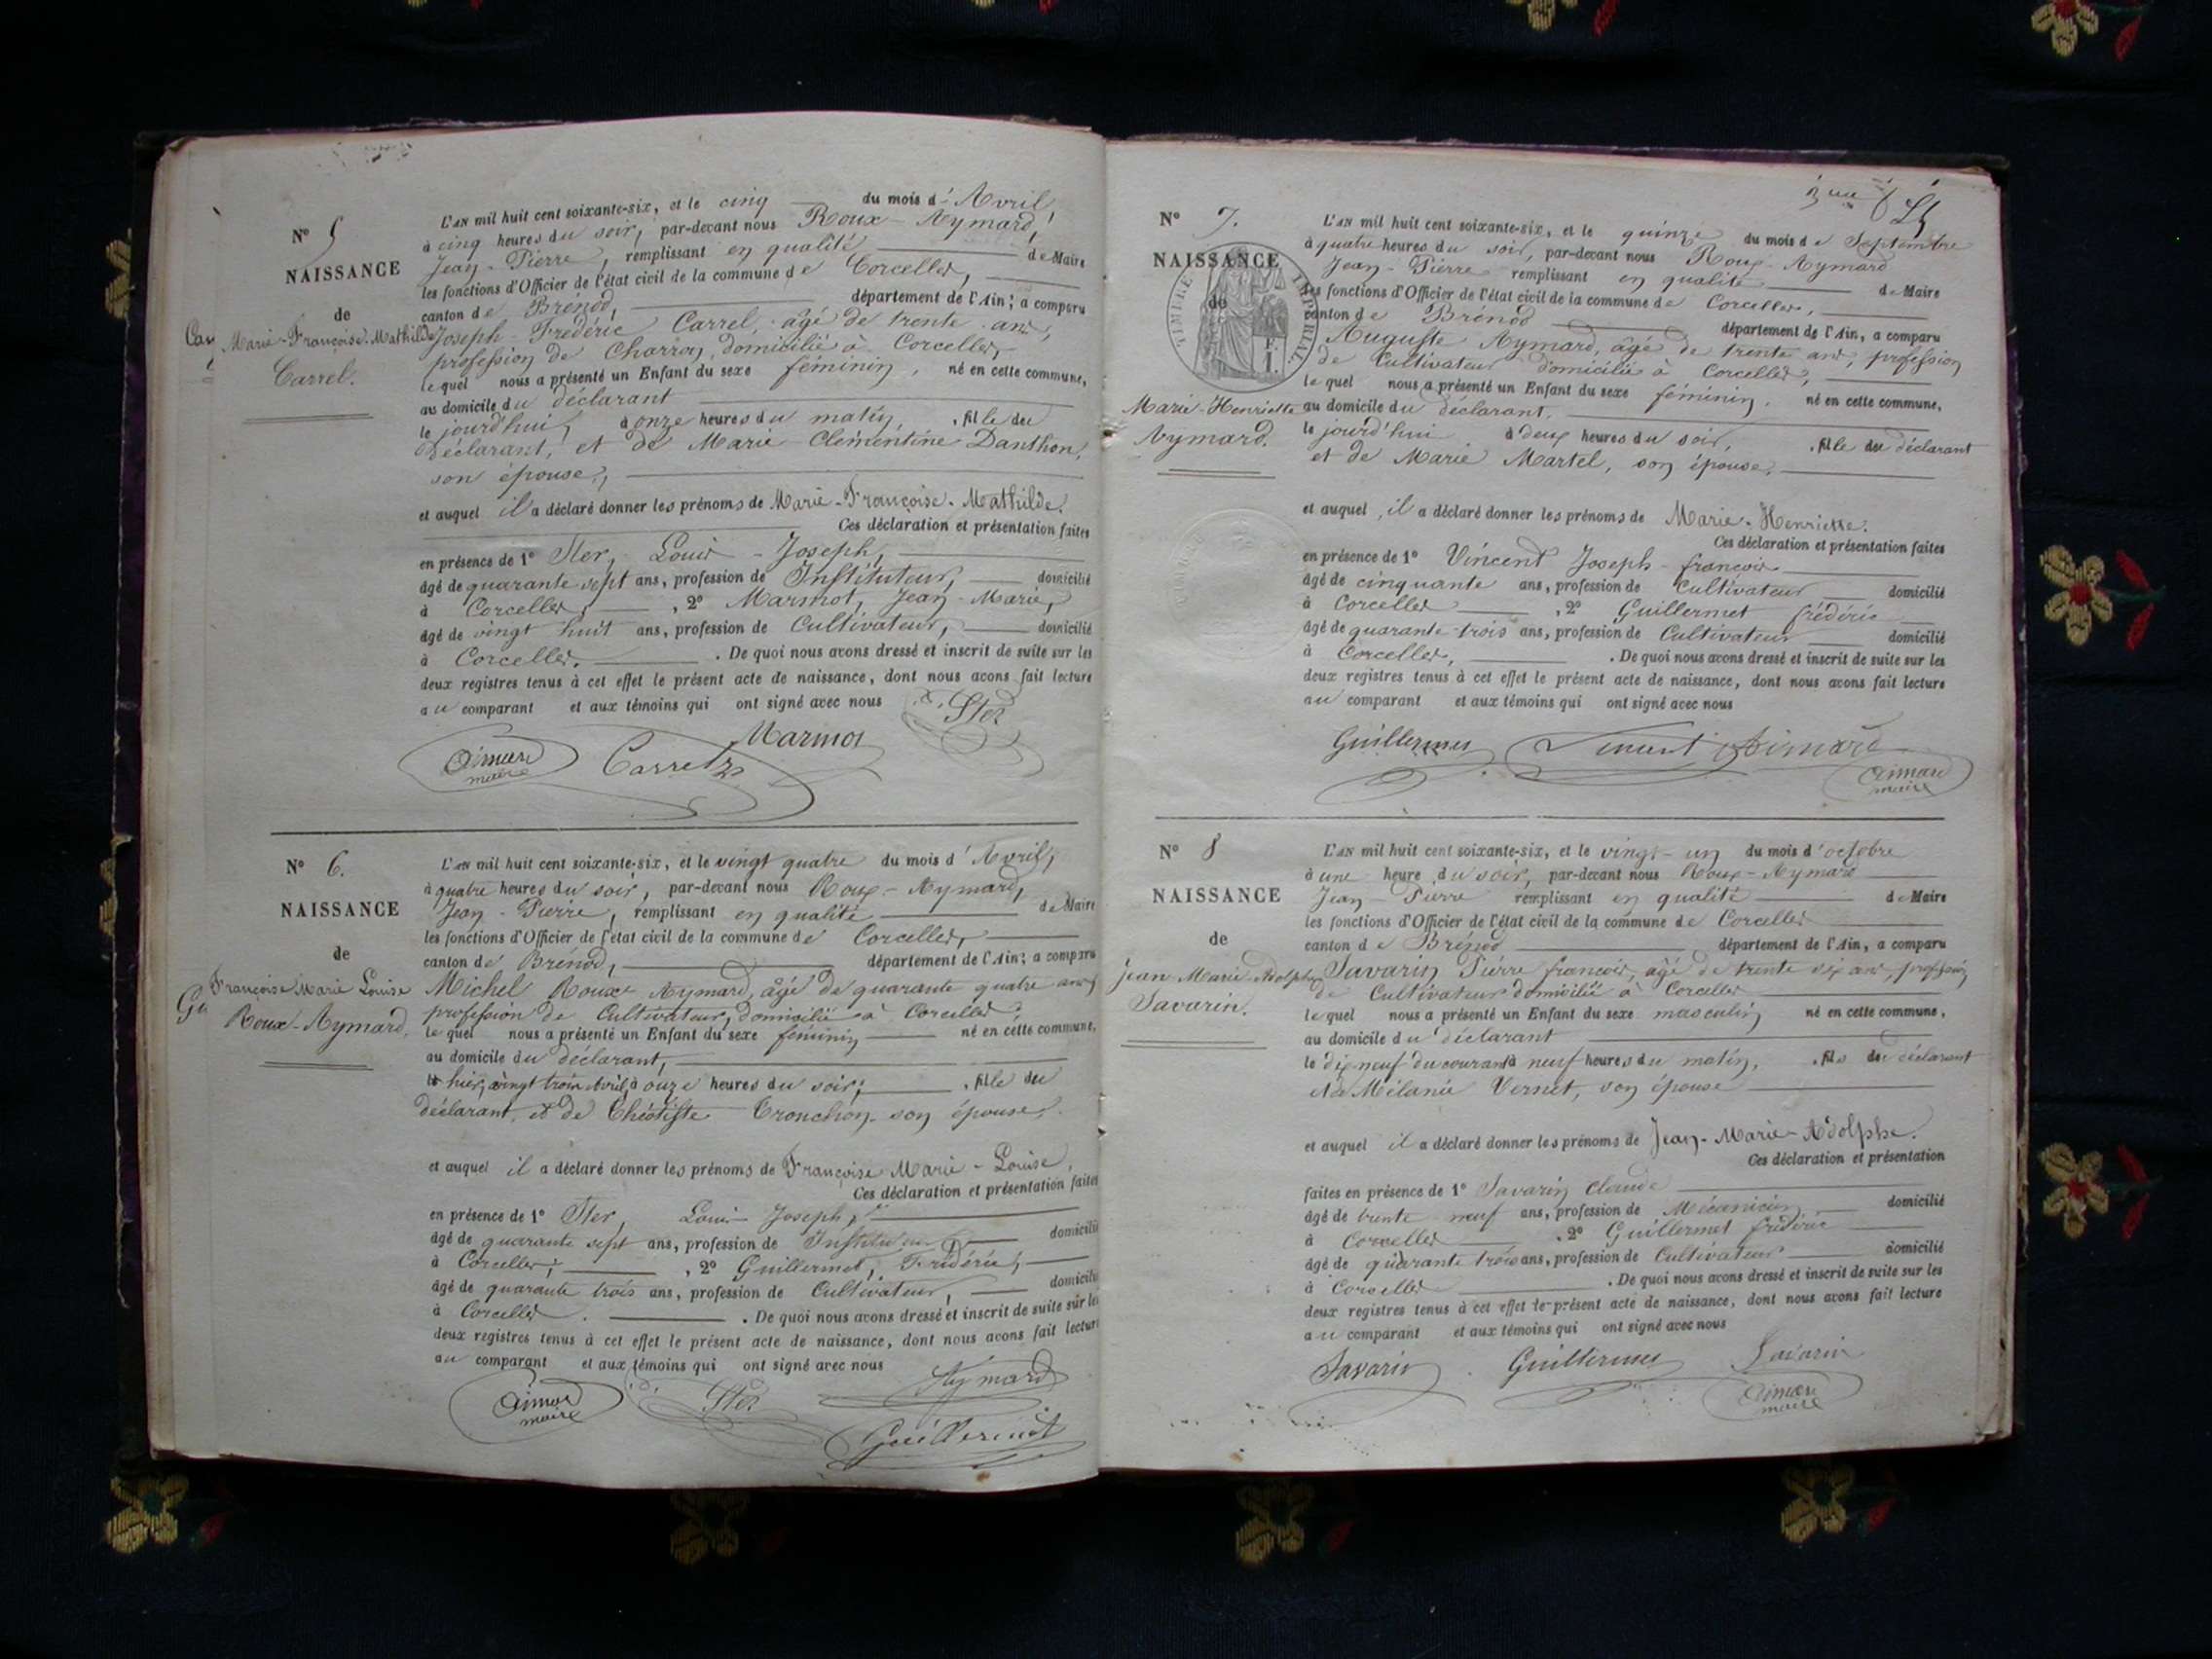 N° 5
NAISSANCE
de
Marie-Françoise-Mathilde
Carrel.
L'AN mil huit cent soixante-six, et le cinq du mois d'Avril,
à cinq heures du soir, par-devant nous Roux-Aymard,
Jean-Pierre, remplissant en qualité de Maire
les fonctions d'Officier de l'état civil de la commune de Corcelles,
canton de Brénod, département de l'Ain; a comparu
Joseph-Frédéric Carrel, âgé de trente ans,
profession de Charron, domicilié à Corcelles,
lequel nous a présenté un Enfant du sexe féminin, né en cette commune,
au domicile du déclarant
le jourd'hui, à onze heures du matin, fille du
déclarant, et de Marie-Clémentine Danthon,
son épouse,
et auquel il a déclaré donner les prénoms de Marie-Françoise-Mathilde.
Ces déclaration et présentation faites
en présence de 1° Ster, Louis-Joseph,
âgé de quarante sept ans, profession de Instituteur, domicilié
à Corcelles, 2° Marmot, Jean-Marie,
âgé de vingt huit ans, profession de Cultivateur, domicilié
à Corcelles. De quoi nous avons dressé et inscrit de suite sur les
deux registres tenus à cet effet le présent acte de naissance, dont nous avons fait lecture
au comparant et aux témoins qui ont signé avec nous
Ster
Marmot
Aimard
maire
Carrel
N° 6.
NAISSANCE
de
Françoise Marie Louise
Roux-Aymard.
L'AN mil huit cent soixante-six, et le vingt quatre du mois d'Avril,
à quatre heures du soir, par-devant nous Roux-Aymard,
Jean-Pierre, remplissant en qualité de Maire
les fonctions d'Officier de l'état civil de la commune de Corcelles,
canton de Brénod, département de l'Ain; a comparu
Michel Roux-Aymard, âgé de quarante quatre ans,
profession de Cultivateur, domicilié à Corcelles,
lequel nous a présenté un Enfant du sexe féminin né en cette commune,
au domicile du déclarant,
hier, vingt trois Avril, à onze heures du soir, fille du
déclarant, et de Théotiste Tronchon son épouse.
et auquel il a déclaré donner les prénoms de Françoise Marie-Louise,
Ces déclaration et présentation faites
en présence de 1° Ster, Louis Joseph,
âgé de quarante sept ans, profession de Instituteur domicilié
à Corcelles, 2° Guillermet, Frédéric,
âgé de quarante trois ans, profession de Cultivateur, domicilié
à Corcelles. De quoi nous avons dressé et inscrit de suite sur les
deux registres tenus à cet effet le présent acte de naissance, dont nous avons fait lecture
au comparant et aux témoins qui ont signé avec nous
Aimard
maire
Ster
Aymard
Guillermet
N° 7.
NAISSANCE
de
TIMBRE IMPERIAL
Marie-Henriette
Aymard.
L'AN mil huit cent soixante-six, et le quinze du mois de Septembre
à quatre heures du soir, par-devant nous Roux-Aymard
Jean-Pierre remplissant en qualité de Maire
les fonctions d'Officier de l'état civil de la commune de Corcelles,
canton de Brénod département de l'Ain, a comparu
Auguste Aymard, âgé de trente ans, profession
de Cultivateur domicilié à Corcelles,
lequel nous a présenté un Enfant du sexe féminin. né en cette commune,
au domicile du déclarant.
le jourd'hui à deux heures du soir, fille du déclarant
et de Marie Martel, son épouse.
et auquel, il a déclaré donner les prénoms de Marie-Henriette.
Ces déclaration et présentation faites
en présence de 1° Vincent Joseph-françois
âgé de cinquante ans, profession de Cultivateur domicilié
à Corcelles, 2° Guillermet frédéric
âgé de quarante-trois ans, profession de Cultivateur domicilié
à Corcelles, De quoi nous avons dressé et inscrit de suite sur les
deux registres tenus à cet effet le présent acte de naissance, dont nous avons fait lecture
au comparant et aux témoins qui ont signé avec nous
Guillermet Vincent Aimard
Aimard
maire
N° 8
NAISSANCE
de
Jean Marie Adolphe
Savarin.
L'AN mil huit cent soixante-six, et le vingt-un du mois d'octobre
à une heure du soir, par-devant nous Roux-Aymard
Jean-Pierre remplissant en qualité de Maire
les fonctions d'Officier de l'état civil de la commune de Corcelles
canton de Brénod département de l'Ain, a comparu
Savarin Pierre françois, âgé de trente six ans, profession
de Cultivateur domicilié à Corcelles
lequel nous a présenté un Enfant du sexe masculin né en cette commune,
au domicile du déclarant
le dix neuf du courant à neuf heures du matin, fils du déclarant
et de Mélanie Vernet, son épouse
et auquel il a déclaré donner les prénoms de Jean-Marie-Adolphe.
Ces déclaration et présentation
faites en présence de 1° Savarin Claude
âgé de trente-neuf ans, profession de Mécanicien domicilié
à Corcelles, 2° Guillermet frédéric
âgé de quarante trois ans, profession de Cultivateur domicilié
à Corcelles. De quoi nous avons dressé et inscrit de suite sur les
deux registres tenus à cet effet le présent acte de naissance, dont nous avons fait lecture
au comparant et aux témoins qui ont signé avec nous
Savarin Guillermet Savarin
Aimard
maire